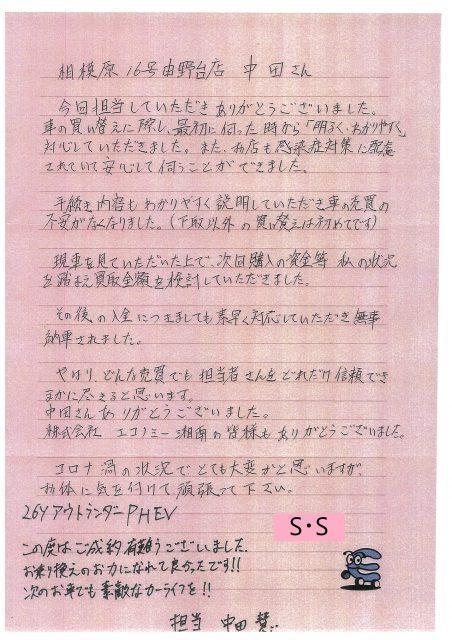 相模原16号由野台店 中田さん
今回担当していただきありがとうございました。
車の買い替えに際し、最初に伺った時から「明るく・わかりやすく」
対応していただきました。また、お店も感染症対策に配慮
されていて安心して伺うことができました。
手続き内容もわかりやすく説明していただき車の売買の
不安がなくなりました。(下取以外の買い替えは初めてです)
現車を見ていただいた上で、次回購入の資金等 私の状況
を踏まえ買取金額を検討していただきました。
その後の入金につきましても素早く対応していただき無事
納車されました。
やはり、どんな売買でも担当者さんをどれだけ信頼でき
るかに尽きると思います。
中田さんありがとうございました。
株式会社 エコノミー湘南の皆様もありがとうございました。
コロナ渦の状況でとても大変かと思いますが、
お体に気を付けて頑張って下さい。
26Y アウトランダーPHEV
S・S
この度はご成約有難うございました。
お乗り換えのお力になれて良かったです!!
次のお車でも素敵なカーライフを!!
担当 中田